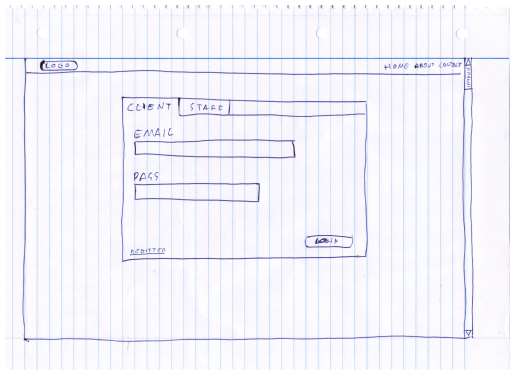 LOGO
HOME ABOUT CONTACT
CLIENT STAFF
EMAIL
PASS
LOGIN